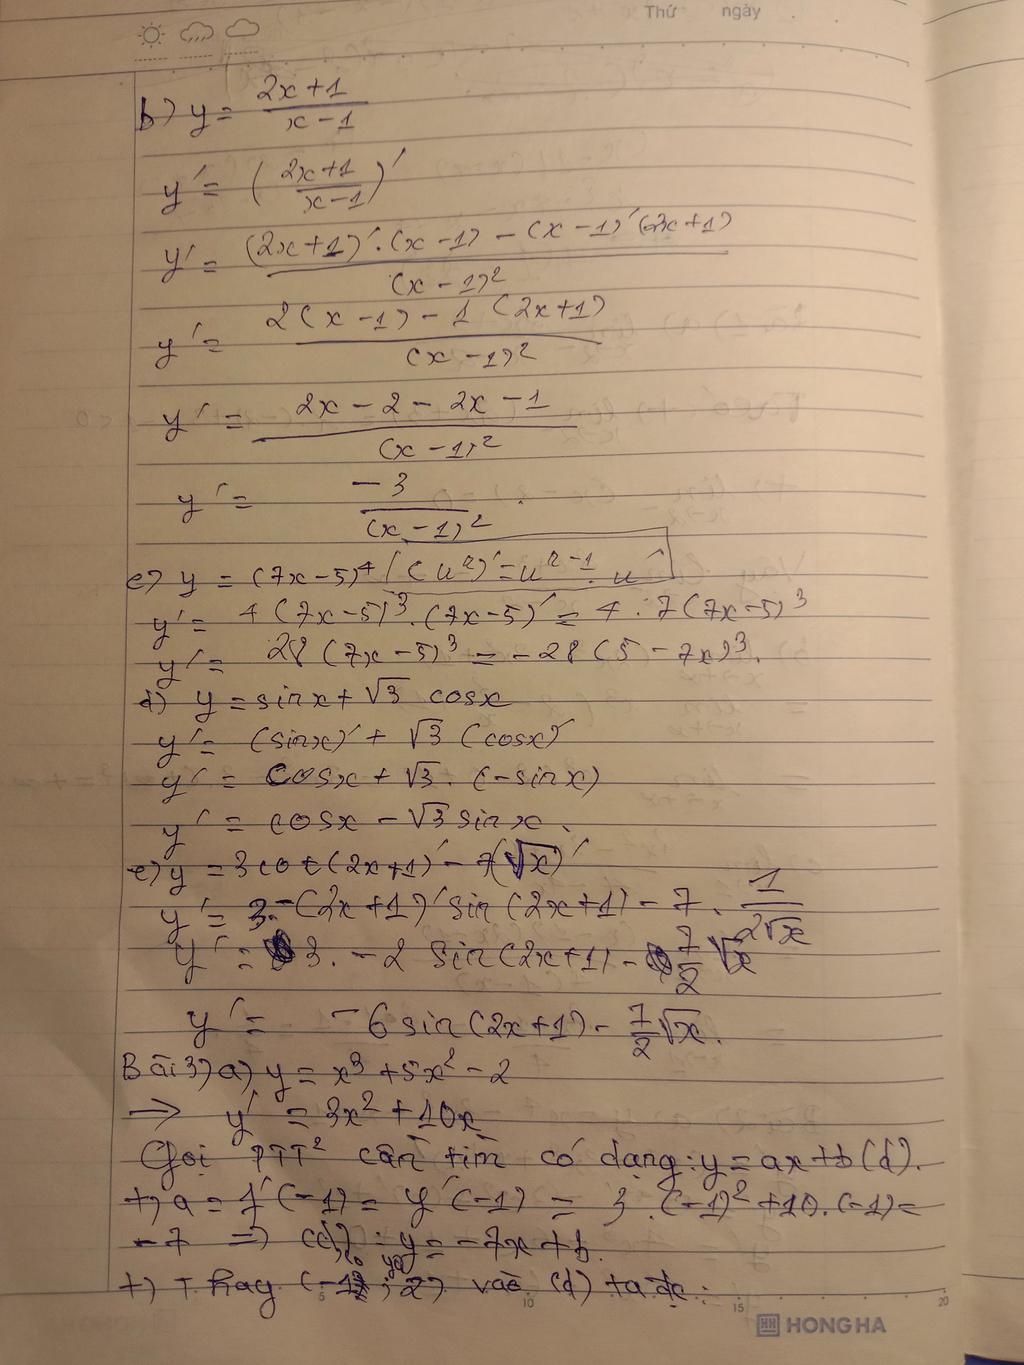 Thứ ngày
b) y = (2x+1)/(x-1)
y' = ((2x+1)/(x-1))'
y' = ((2x+1)'.(x-1) - (x-1)'(2x+1))/(x-1)²
y' = (2(x-1) - 1(2x+1))/(x-1)²
y' = (2x-2-2x-1)/(x-1)²
y' = -3/(x-1)²
c) y = (7x-5)⁴ (uⁿ)' = uⁿ⁻¹.u'
y' = 4(7x-5)³.(7x-5)' = 4.7(7x-5)³
y' = 28(7x-5)³ = -28(5-7x)³.
d) y = sinx + √3 cosx
y' = (sinx)' + √3 (cosx)'
y' = cosx + √3.(-sinx)
y' = cosx - √3 sinx.
e) y = 3cot(2x+1)' - 7(√x)'
y' = 3.-(2x+1)' sin(2x+1) - 7. 1/(2√x)
y' = 3. -2 sin(2x+1) - 7/2 √x
y' = -6 sin(2x+1) - 7/2 √x.
Bài 3) a) y = x³ + 5x² - 2
→ y' = 3x² + 10x
Gọi PTT² cần tìm có dạng: y = ax+b (d).
+) a = f'(-1) = y'(-1) = 3.(-1)²+10.(-1) =
-7 => (d): y = -7x+b.
+) Thay (-1; 2) vào (d) ta đc:
5 10 15 20
HONG HA